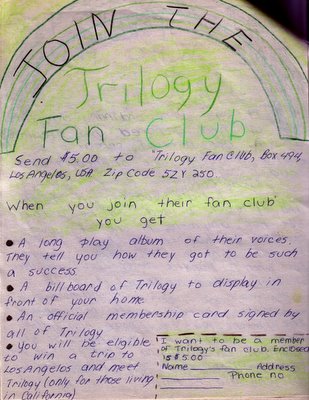 JOIN THE
Trilogy
Fan Club
Send $5.00 to "Trilogy Fan Club, Box 494,
Los Angelos, USA Zip Code 5ZY 250.
When you join their fan club
you get
● A long play album of their voices.
They tell you how they got to be such
a success.
● A billboard of Trilogy to display in
front of your home.
● An official membership card signed by
all of Trilogy
● You will be eligible
to win a trip to
Los Angelos and meet
Trilogy (only for those living
in California)
I want to be a member
of Trilogy's fan club. Enclosed
is $5.00
Name Address
Phone no